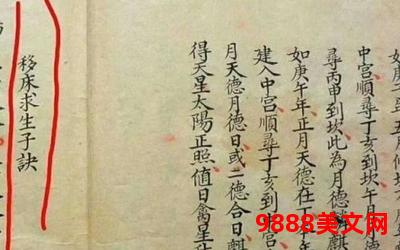 中宮順尋丁亥到坎午月月德
尋丙甲到坎此為月德麒
如庚午年正月天德在丁
建入中宮順尋丁亥到
月天德月德日或二德合日麒
得天星太陽正照值日禽星
移床求生子訣
9888美文网